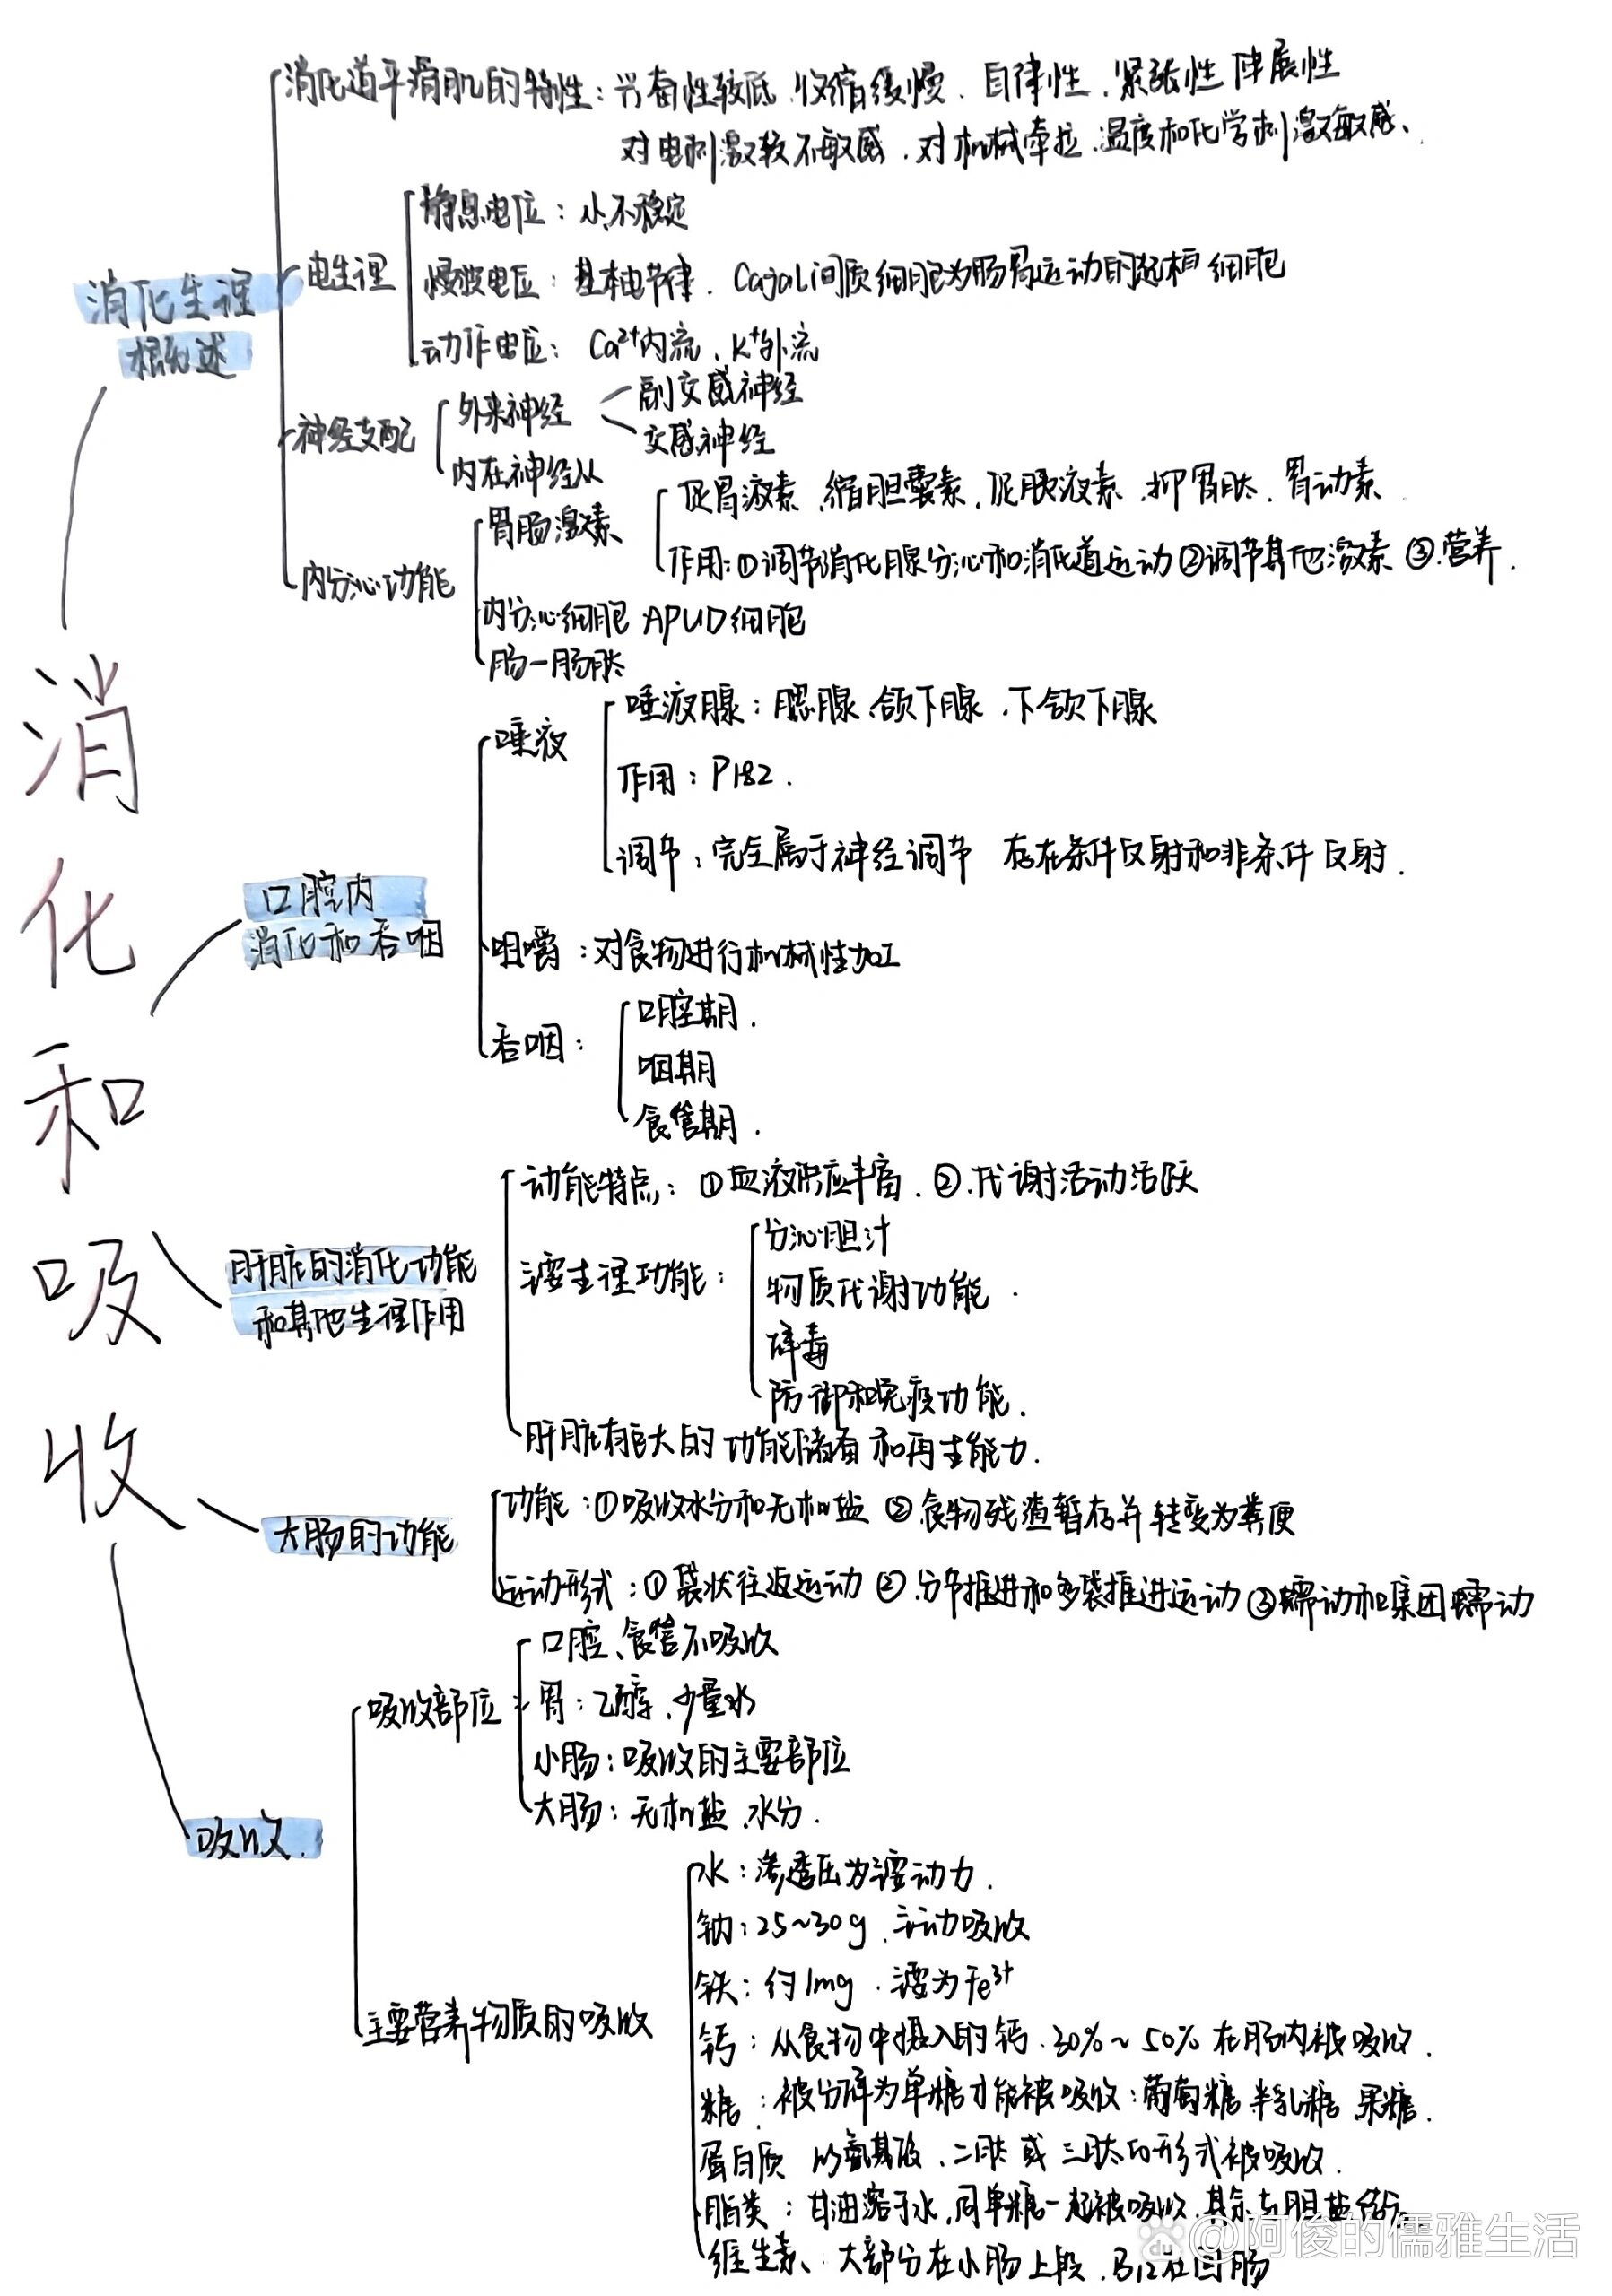 消化道平滑肌的特性：兴奋性较低、收缩缓慢、自律性、紧张性 伸展性
对电刺激较不敏感、对机械牵拉、温度和化学刺激敏感、
静息电位：小、不稳定
电生理
慢波电位：基本电节律、Cajal间质细胞为肠胃运动的起搏细胞
消化生理
概述
动作电位：Ca²⁺内流、K⁺外流
神经支配
外来神经
副交感神经
交感神经
内在神经丛
内分泌功能
胃肠激素
促胃液素、缩胆囊素、促胰液素、抑胃肽、胃动素
作用：①调节消化腺分泌和消化道运动②调节其他激素③.营养.
内分泌细胞 APUD细胞
肠-肠肽
消化和吸收
口腔内
消化和吞咽
唾液
唾液腺：腮腺、颌下腺、下颌下腺
作用：P182.
调节：完全属于神经调节 存在条件反射和非条件反射.
咀嚼：对食物进行机械性加工
吞咽：
口腔期.
咽期
食管期.
肝脏的消化功能
和其他生理作用
功能特点：①血液供应丰富、②.代谢活动活跃
主要生理功能：
分泌胆汁
物质代谢功能.
解毒
防御和免疫功能.
肝脏有巨大的功能储备和再生能力.
大肠的功能
功能：①吸收水分和无机盐②食物残渣暂存并转变为粪便
运动形式：①袋状往返运动②.分节推进和多袋推进运动③蠕动和集团蠕动
吸收.
吸收部位：
口腔、食管不吸收
胃：乙醇、少量水
小肠：吸收的主要部位
大肠：无机盐、水分.
主要营养物质的吸收
水：渗透压为主要动力.
钠：25~30g、主动吸收
铁：约1mg.主要为Fe³⁺
钙：从食物中摄入的钙、30%~50%在肠内被吸收.
糖：被分解为单糖才能被吸收：葡萄糖 半乳糖 果糖.
蛋白质 以氨基酸、二肽或三肽的形式被吸收.
脂类：甘油溶于水、同单糖一起被吸收、其余与胆盐结合.
维生素、大部分在小肠上段、B12在回肠
du @阿俊的儒雅生活